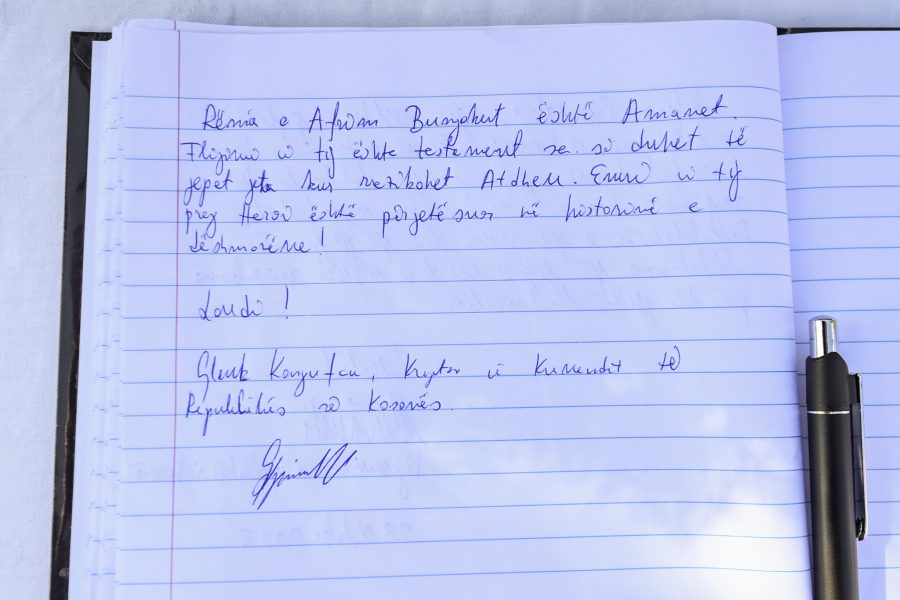 Rënia e Afrim Bunjakut është Amanet.
Flijimi i tij është testament se si duhet të
jepet jeta kur rrezikohet Atdheu. Emri i tij
prej Heroi është përjetësuar në historinë e
dëshmorëve!
Lavdi!
Glauk Konjufca, Kryetar i Kuvendit të
Republikës së Kosovës.